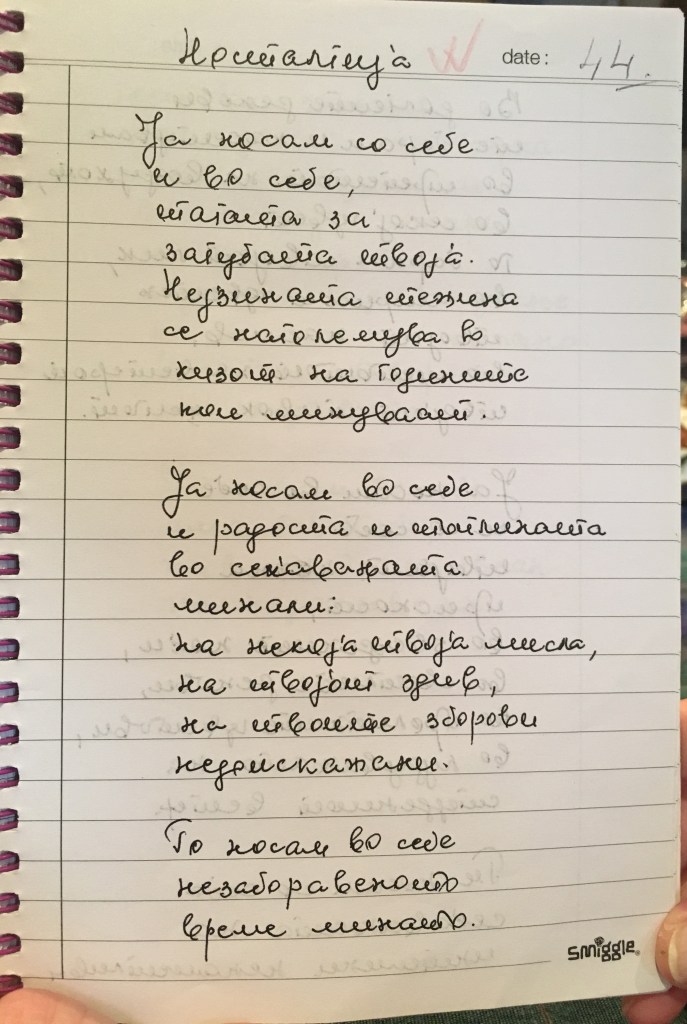 Носталгија
date: 44.
Ја носам со себе
и во себе,
татата за
загубата твоја.
Нејзината тежина
се наголемува во
низот на годините
кои минуваат.
Ја носам во себе
и радоста и топлината
во сеќавањата
минали:
на некоја твоја мисла,
на твојот здив,
на твоите зборови
недоискажани.
Го носам во себе
незаборавеното
време минато.
smiggle